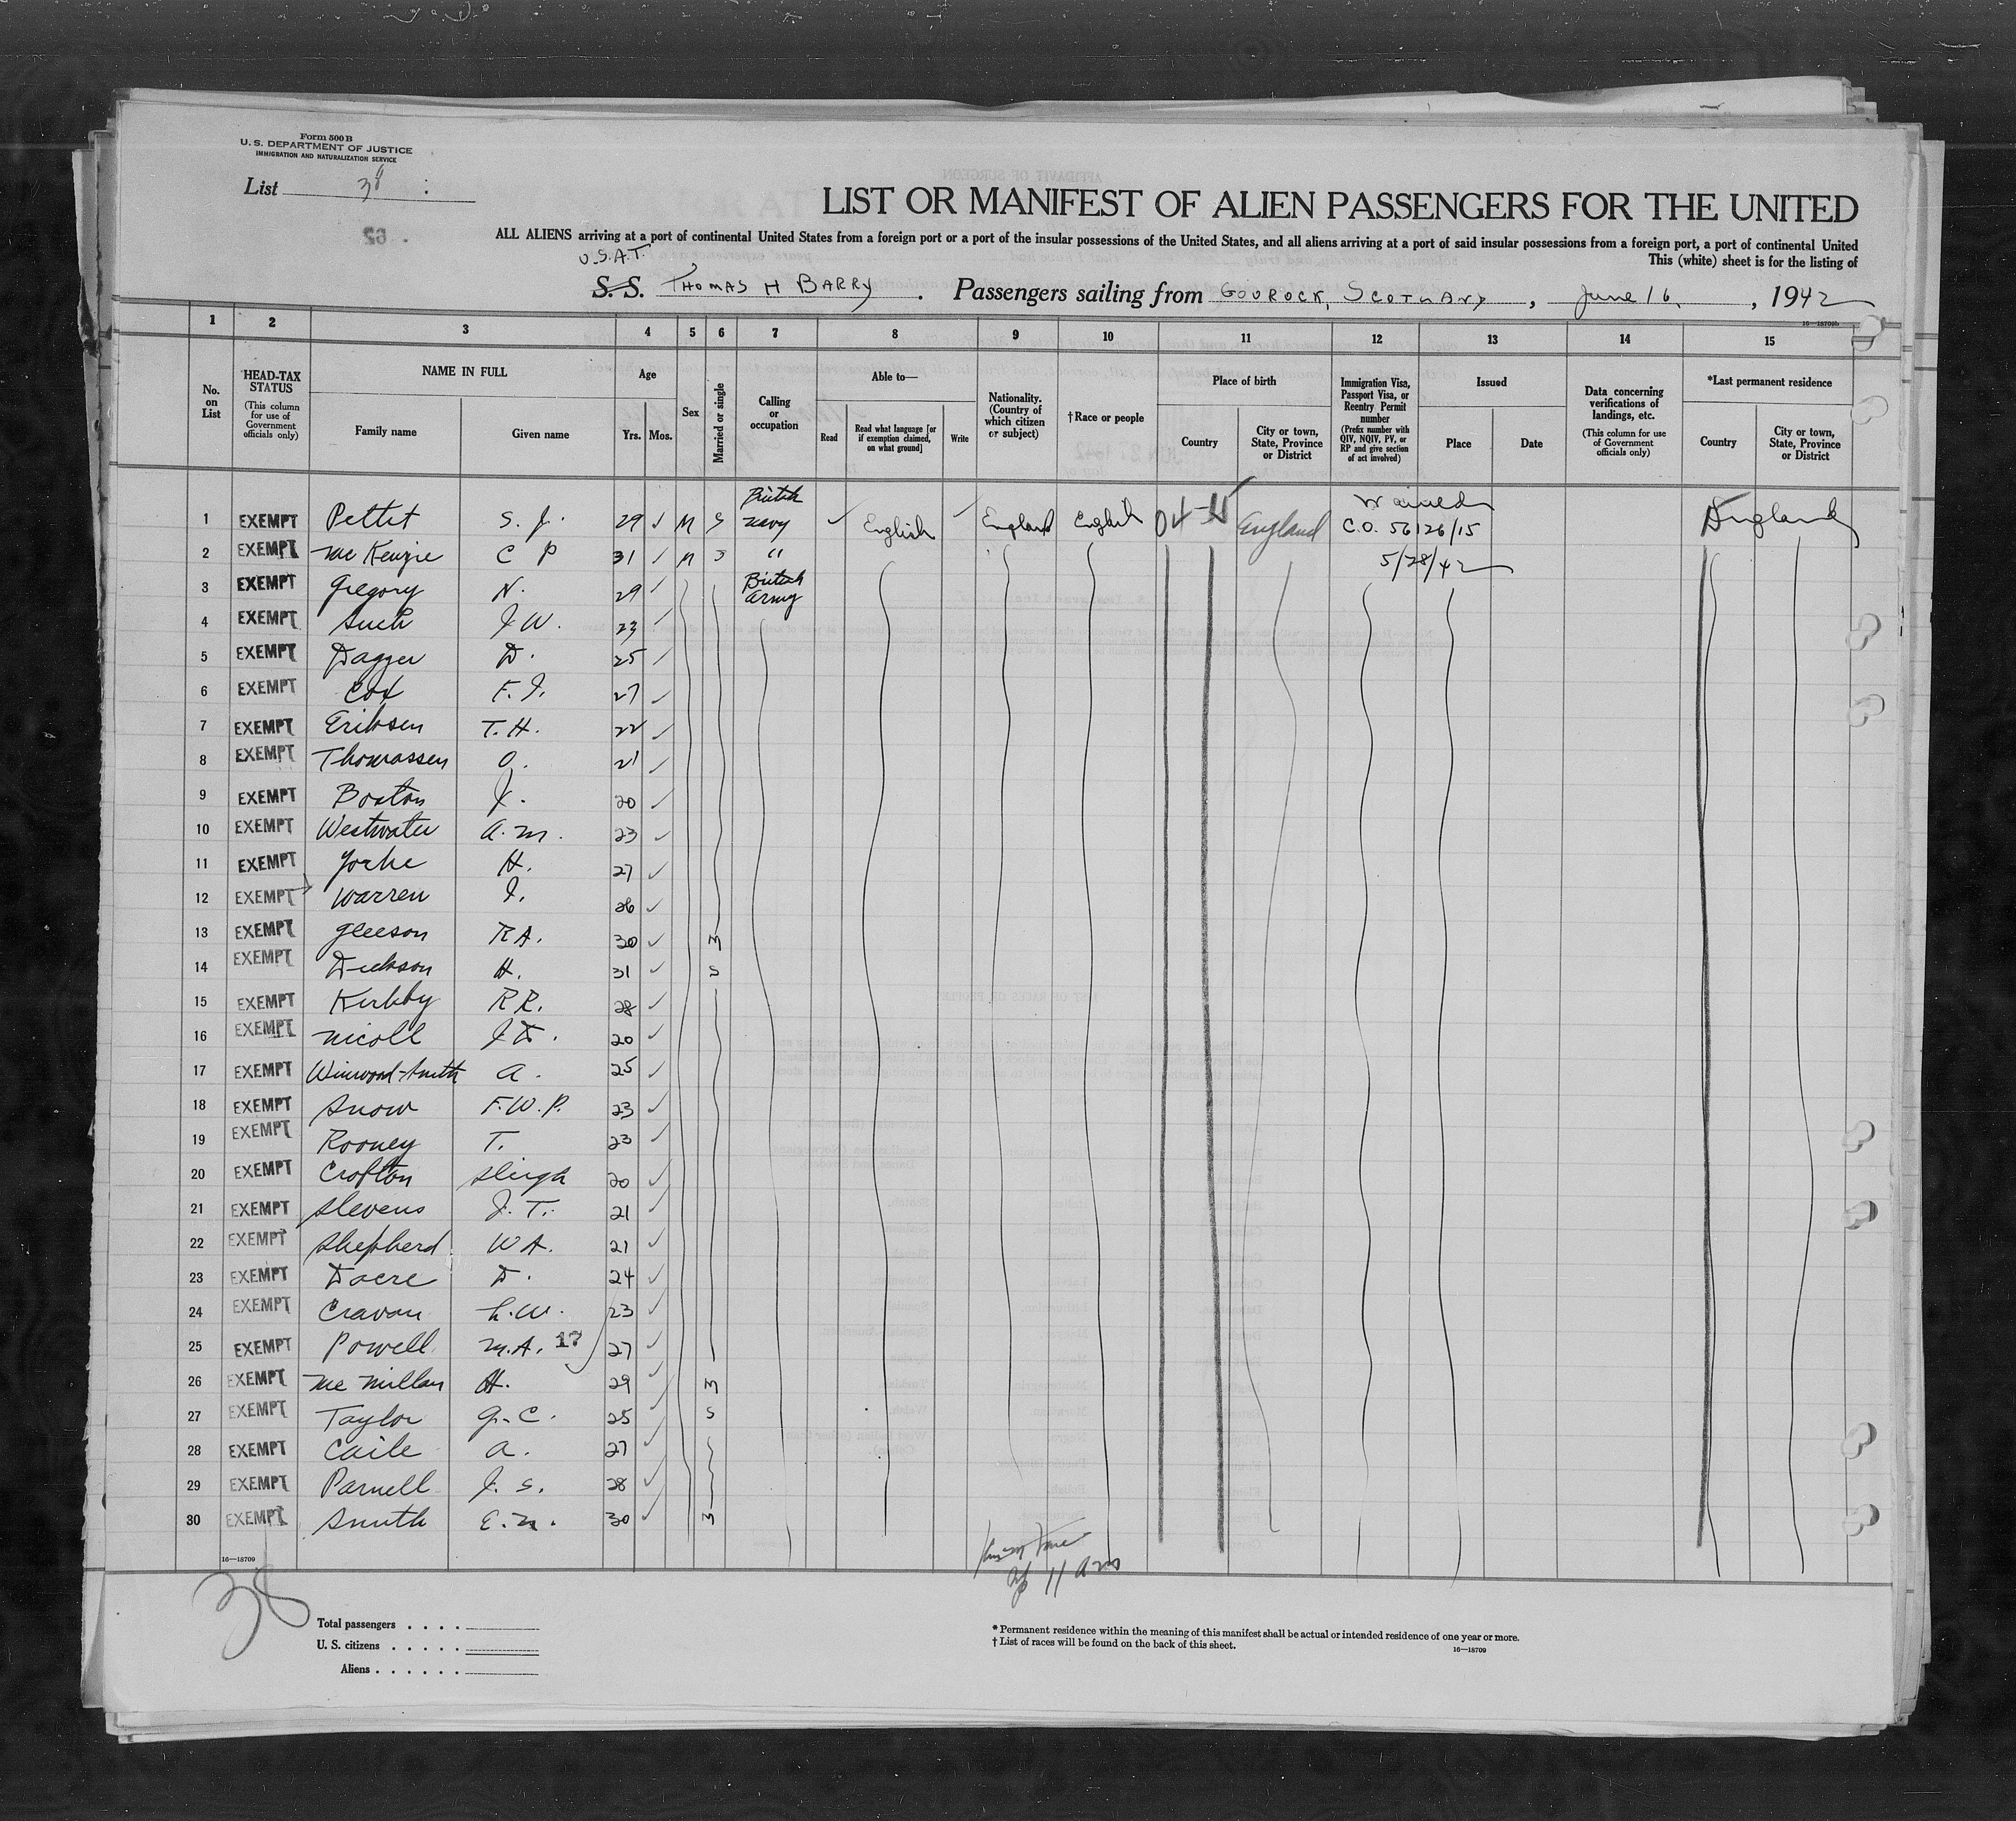 Form 500 B
U. S. DEPARTMENT OF JUSTICE
IMMIGRATION AND NATURALIZATION SERVICE
List 38
LIST OR MANIFEST OF ALIEN PASSENGERS FOR THE UNITED
ALL ALIENS arriving at a port of continental United States from a foreign port or a port of the insular possessions of the United States, and all aliens arriving at a port of said insular possessions from a foreign port, a port of continental United
This (white) sheet is for the listing of
U.S.A.T.
S. S. THOMAS H BARRY. Passengers sailing from GOUROCK, SCOTLAND, June 16, 1942
16—18709b
1 2 3 4 5 6 7 8 9 10 11 12 13 14 15
No. on List
HEAD-TAX STATUS (This column for use of Government officials only)
NAME IN FULL
Family name Given name
Age
Yrs. Mos.
Sex
Married or single
Calling or occupation
Able to—
Read
Read what language [or if exemption claimed, on what ground]
Write
Nationality. (Country of which citizen or subject)
†Race or people
Place of birth
Country
City or town, State, Province or District
Immigration Visa, Passport Visa, or Reentry Permit number (Prefix number with QIV, NQIV, PV, or RP and give section of act involved)
Issued
Place Date
Data concerning verifications of landings, etc. (This column for use of Government officials only)
*Last permanent residence
Country
City or town, State, Province or District
1 EXEMPT Pettet S. J. 29 M S British Navy English England English England Waived C.O. 56126/15 England
2 EXEMPT McKenzie C P 31 M S " 5/28/42
3 EXEMPT Gregory N. 29 British Army
4 EXEMPT Such J W. 23
5 EXEMPT Dagger D. 25
6 EXEMPT Cox F. J. 27
7 EXEMPT Eriksen T. H. 22
8 EXEMPT Thomassen O. 21
9 EXEMPT Boston J. 20
10 EXEMPT Westwater A. M. 23
11 EXEMPT Yorke H. 27
12 EXEMPT Warren J. 26
13 EXEMPT Gleeson R A. 30 M
14 EXEMPT Dickson H. 31 S
15 EXEMPT Kirkby R R. 28
16 EXEMPT Nicoll J D. 20
17 EXEMPT Winwood-Smith A. 25
18 EXEMPT Snow F. W. P. 23
19 EXEMPT Rooney T. 23
20 EXEMPT Crofton Sleigh 20
21 EXEMPT Stevens J. T. 21
22 EXEMPT Shepherd W A. 21
23 EXEMPT Dacre D. 24
24 EXEMPT Cravon L. W. 23
25 EXEMPT Powell M. A. 17 27
26 EXEMPT McMillan H. 29 M
27 EXEMPT Taylor G. C. 25 S
28 EXEMPT Caile A. 27
29 EXEMPT Parnell J. S. 28
30 EXEMPT Smith E. M. 30 M
16—18709
38
Total passengers
U. S. citizens
Aliens
* Permanent residence within the meaning of this manifest shall be actual or intended residence of one year or more.
† List of races will be found on the back of this sheet.
16—18709